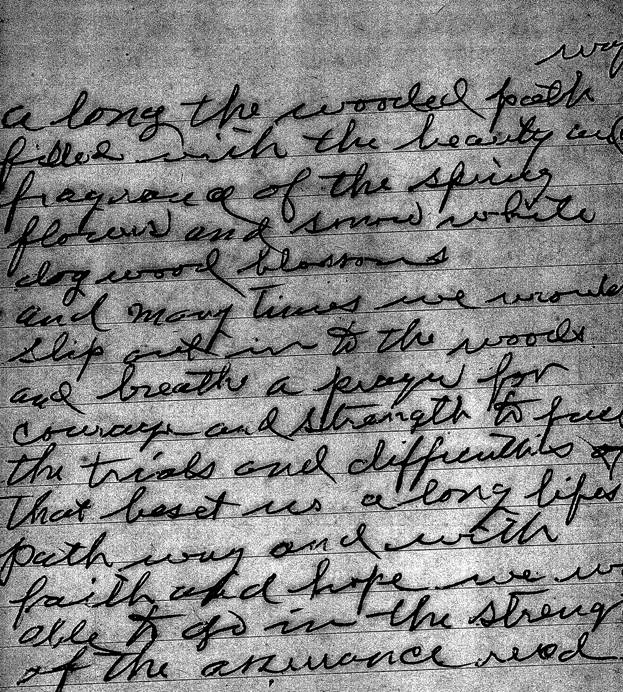 way
a long the wooded path
filled with the beauty and
fragrance of the spring
flowers and snow white
dog wood blossoms
and many times we would
slip out in to the woods
and breath a prayer for
courage and strength to face
the trials and difficulties
that beset us a long lifes
path way and with
faith and hope we
able to go in the streng
of the assurance